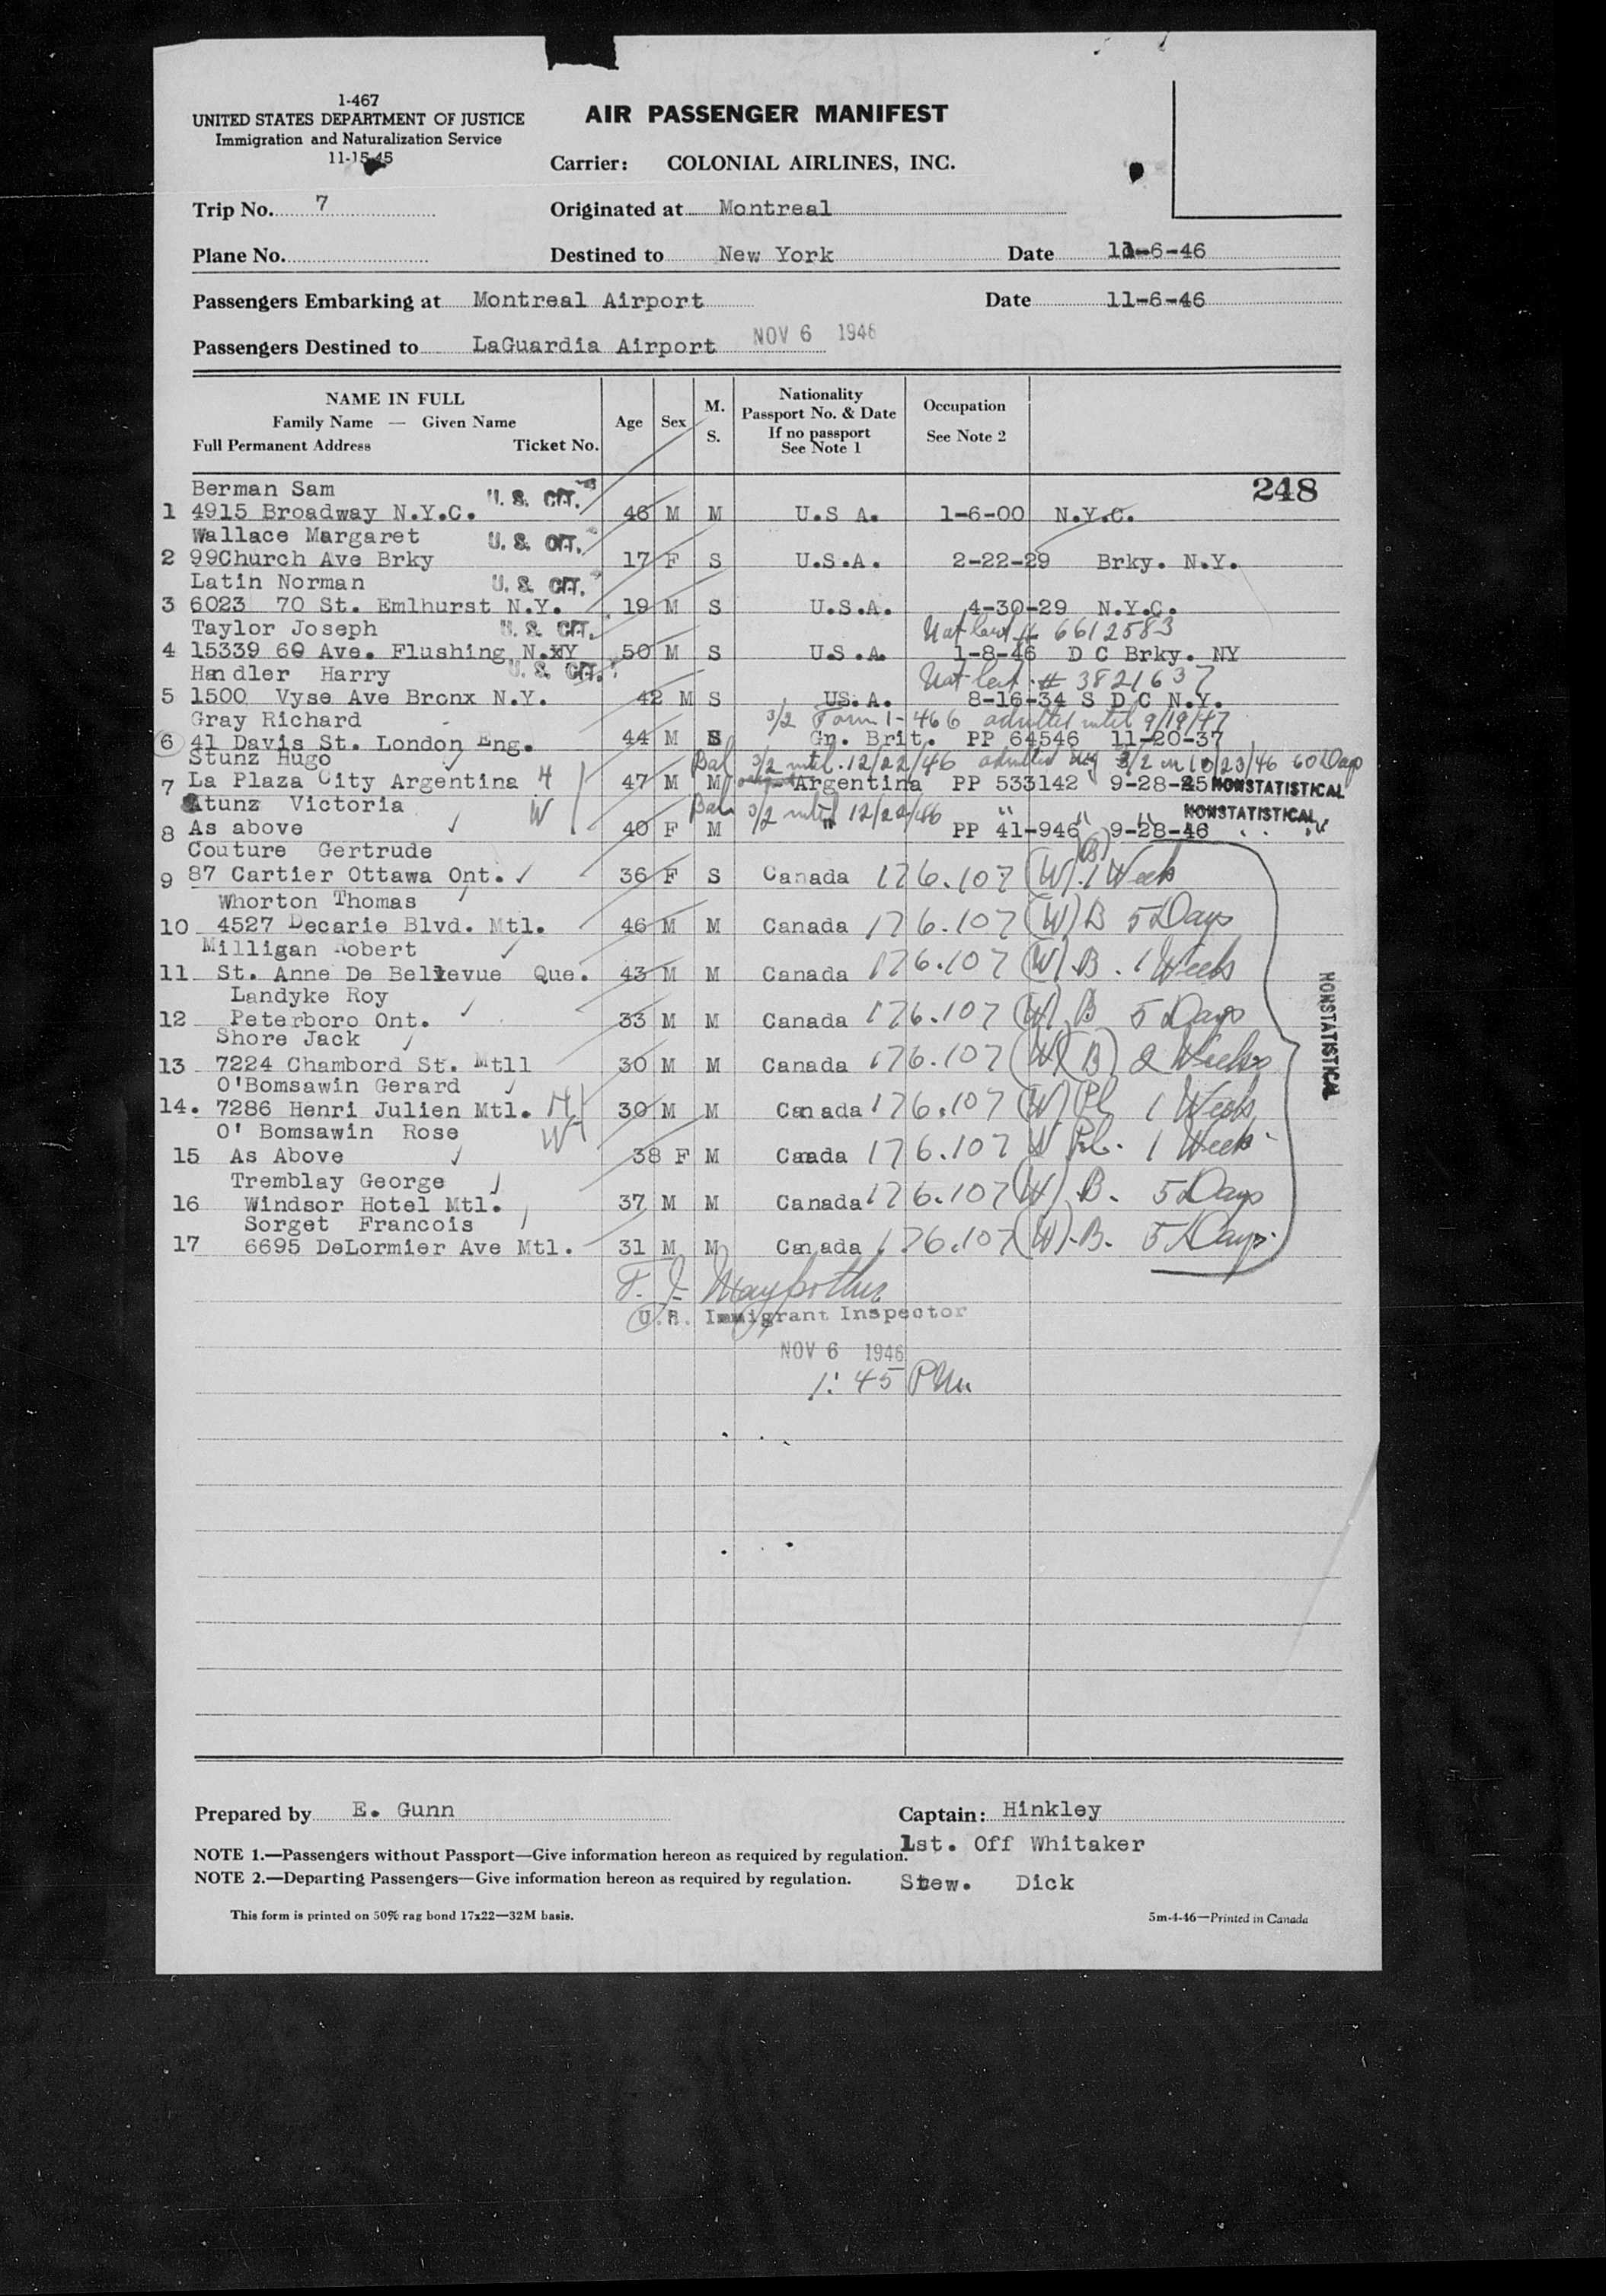 1-467
UNITED STATES DEPARTMENT OF JUSTICE
Immigration and Naturalization Service
11-15-45
AIR PASSENGER MANIFEST
Carrier: COLONIAL AIRLINES, INC.
Trip No. 7 Originated at Montreal
Plane No. Destined to New York Date 11-6-46
Passengers Embarking at Montreal Airport Date 11-6-46
Passengers Destined to LaGuardia Airport NOV 6 1946
NAME IN FULL
Family Name — Given Name
Full Permanent Address Ticket No.
Age Sex M. S.
Nationality
Passport No. & Date
If no passport
See Note 1
Occupation
See Note 2
248
Berman Sam U. S. CIT.
1 4915 Broadway N.Y.C. 46 M M U.S A. 1-6-00 N.Y.C.
Wallace Margaret U. S. CIT.
2 99Church Ave Brky 17 F S U.S.A. 2-22-29 Brky. N.Y.
Latin Norman U. S. CIT.
3 6023 70 St. Emlhurst N.Y. 19 M S U.S.A. 4-30-29 N.Y.C.
Taylor Joseph U. S. CIT. # 6612583
4 15339 60 Ave. Flushing N.Y 50 M S U.S.A. 1-8-46 D C Brky. NY
Handler Harry U. S. CIT. # 3821637
5 1500 Vyse Ave Bronx N.Y. 42 M S US.A. 8-16-34 S D C N.Y.
Gray Richard 3/2 Form I-466 admitted until 9/19/47
6 41 Davis St. London Eng. 44 M S Gr. Brit. PP 64546 11-20-37
Stunz Hugo Bal 3/2 until 12/22/46 admitted 3/2 on 10/23/46 60 Days
7 La Plaza City Argentina H 47 M M Argentina PP 533142 9-28-45 NONSTATISTICAL
Stunz Victoria W Bal 3/2 until 12/22/46 " " " NONSTATISTICAL
8 As above 40 F M " PP 41-946 9-28-46
Couture Gertrude
9 87 Cartier Ottawa Ont. 36 F S Canada 176.107 (W) (B) 1 Week
Whorton Thomas
10 4527 Decarie Blvd. Mtl. 46 M M Canada 176.107 (W) B 5 Days
Milligan Robert
11 St. Anne De Bellevue Que. 43 M M Canada 176.107 (W).B. 1 Week
Landyke Roy
12 Peterboro Ont. 33 M M Canada 176.107 (W) B 5 Days
Shore Jack
13 7224 Chambord St. Mtll 30 M M Canada 176.107 (W) (B) 2 Weeks
O'Bomsawin Gerard
14. 7286 Henri Julien Mtl. H 30 M M Canada 176.107 (W) Pl 1 Week
O' Bomsawin Rose W
15 As Above 38 F M Canada 176.107 W Pl. 1 Week
Tremblay George
16 Windsor Hotel Mtl. 37 M M Canada 176.107 (W) B. 5 Days
Sorget Francois
17 6695 DeLormier Ave Mtl. 31 M M Canada 176.107 (W).B. 5 Days
NONSTATISTICAL
U.S. Immigrant Inspector
NOV 6 1946
1:45 PM
Prepared by E. Gunn Captain: Hinkley
1st. Off Whitaker
Stew. Dick
NOTE 1.—Passengers without Passport—Give information hereon as required by regulation.
NOTE 2.—Departing Passengers—Give information hereon as required by regulation.
This form is printed on 50% rag bond 17x22—32M basis. 5m-4-46—Printed in Canada